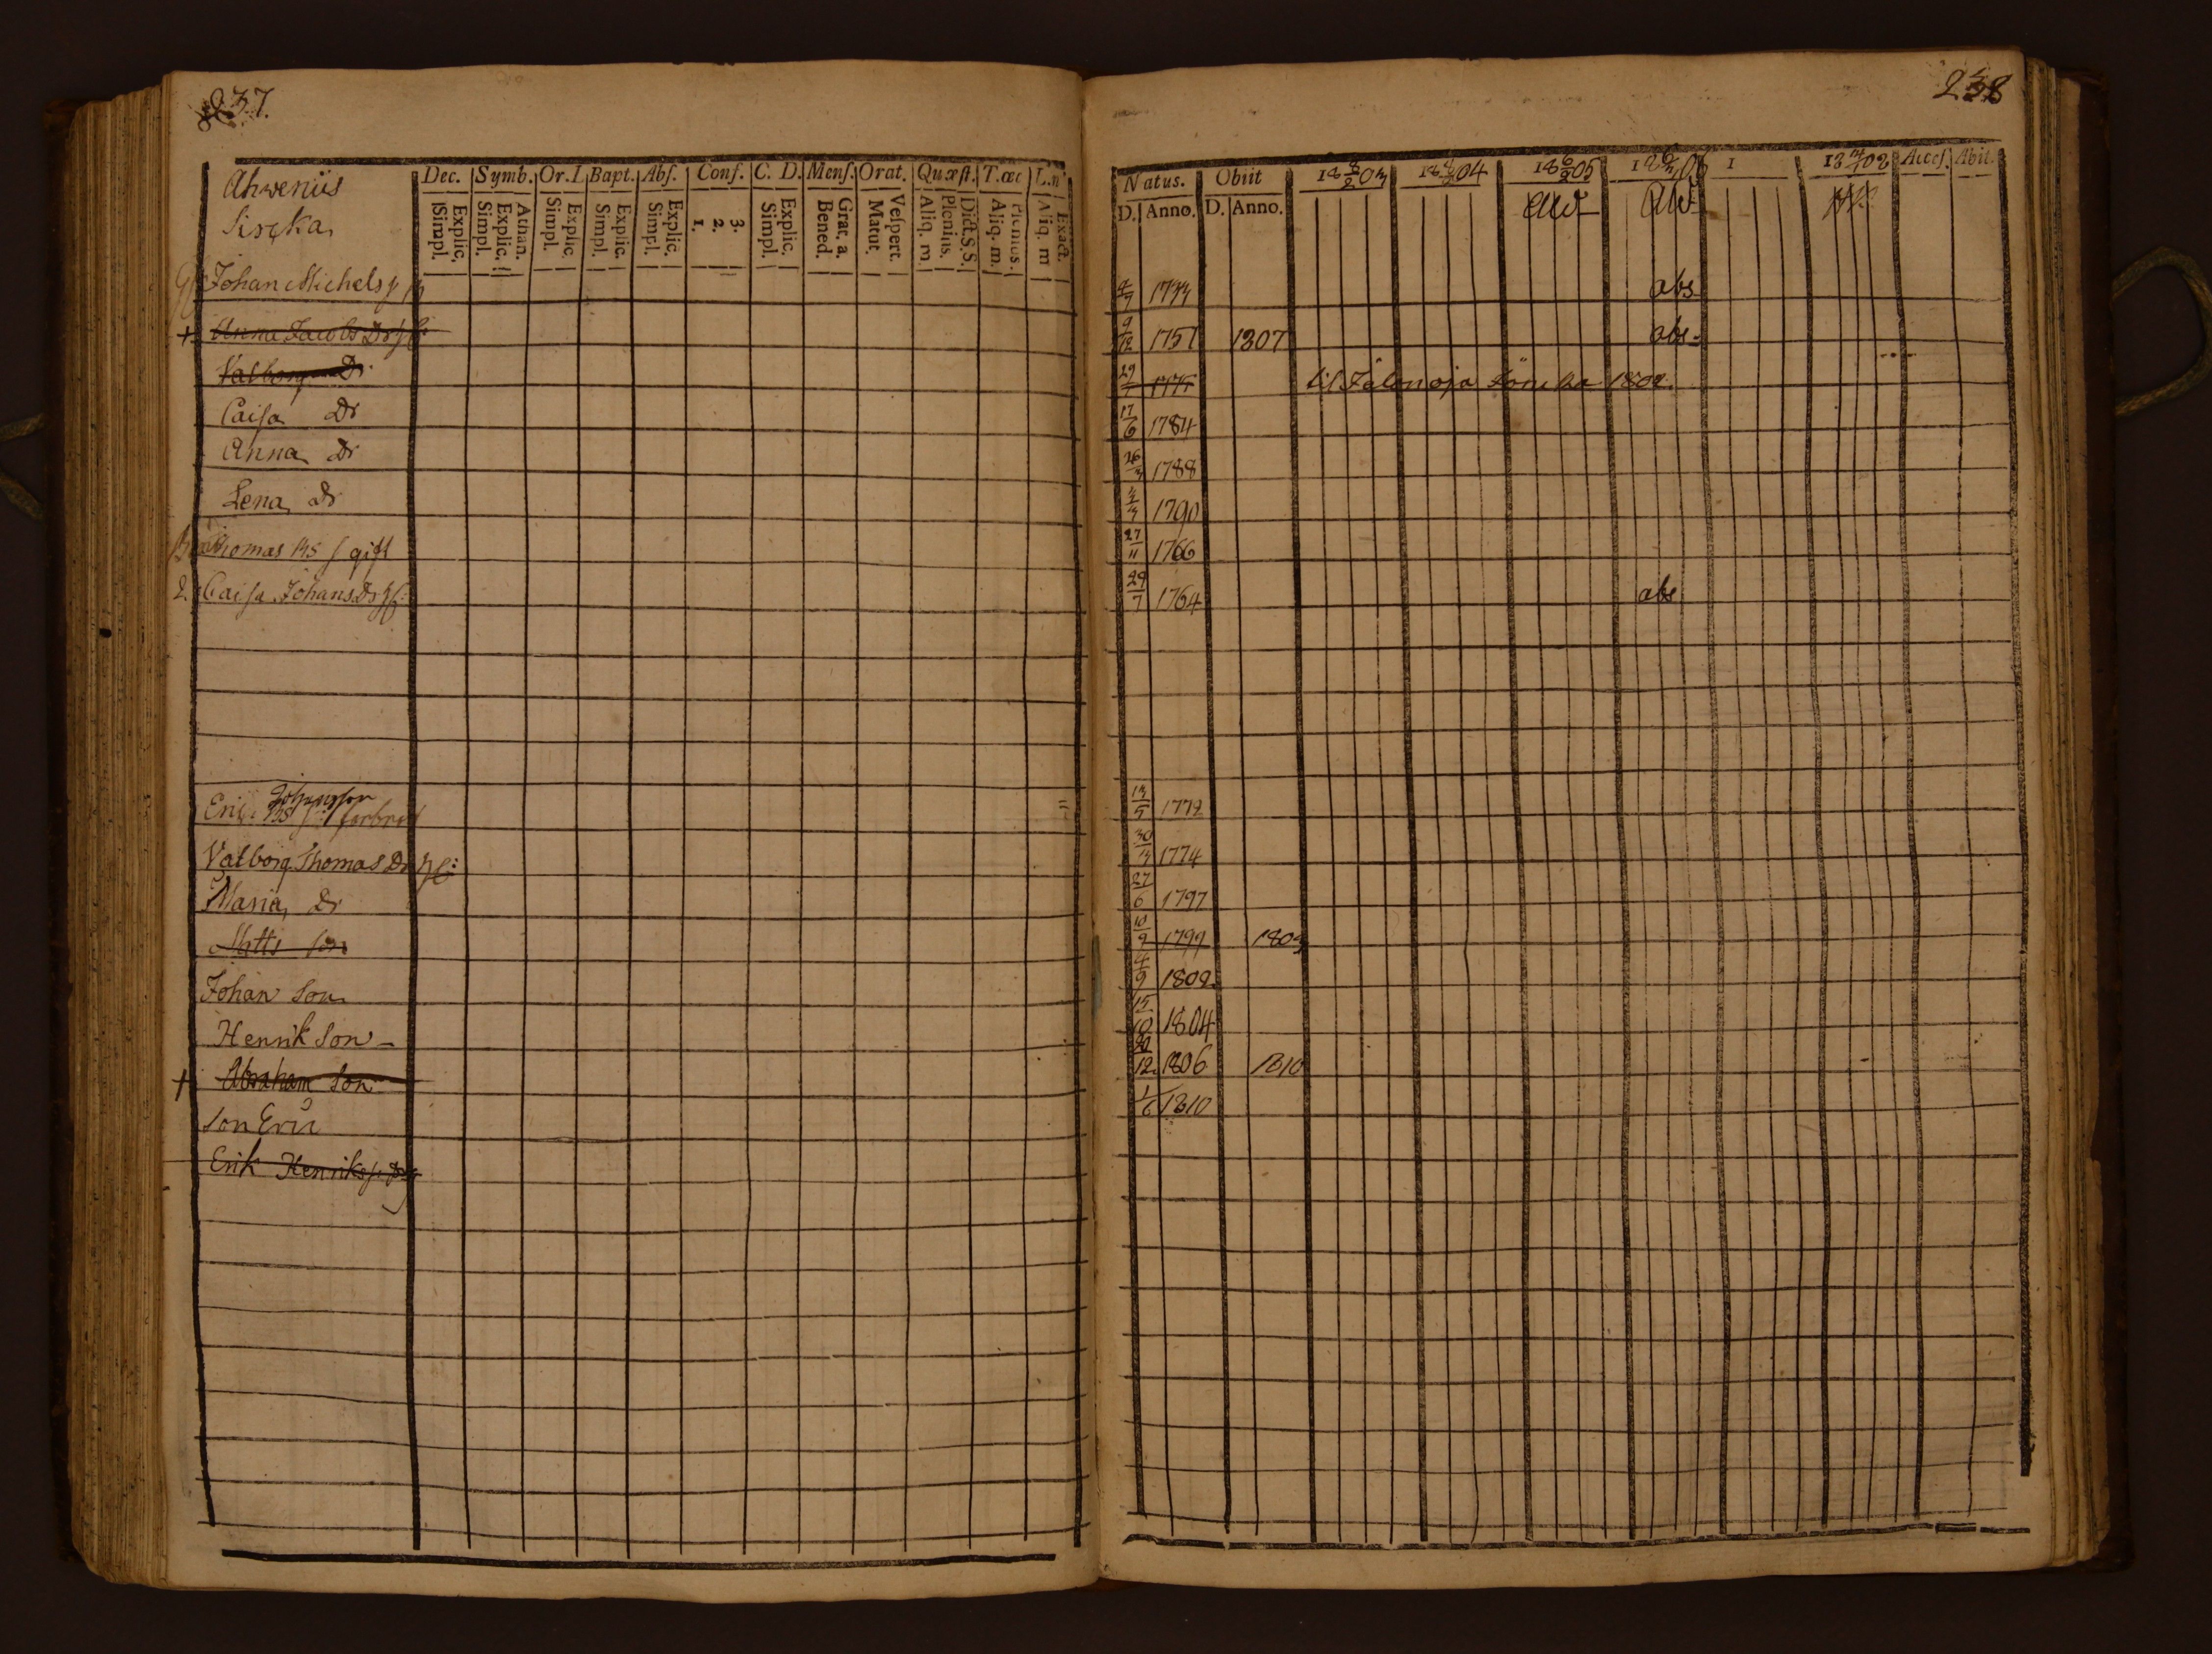 237.
Ahvenus
Siscka
Dec. Symb. Or.I. Bapt. Abſ. Conf. C. D. Menſ. Orat. Quæſt. T.œc
Simpl. Explic.
Simpl. Explic. Athan.
Simpl. Explic.
Simpl. Explic.
Simpl. Explic.
1. 2. 3.
Simpl. Explic.
Bened. Grat. a.
Matut. Veſpert.
Aliq. m. Plenius. Dict.S.S.
Aliq. m. Plenius.
Aliq. m Exact.
Johan Michels
+ Anna Jacobs Dr
Valborg Dr
Caisa Dr
Anna Dr
Lena Dr
Thomas gift
Caisa Johans Dr
Johansson
Eric
Valborg Thomas Dr
Maria Dr
Matts son
Johan Son
Henrik Son
+ Abraham Son
Son Eric
Erik Henriks
238
Natus. Obiit 18 8/2 03 18 04 18 6/2 05 18 06 1 18 08 Acceſ. Abit.
D. Anno. D. Anno.
abs
9/12 1751 1807 abs
29 1775 till Jälonoja 1802
17/6 1784
26/3 1788
1790
27/11 1766
29/7 1764 abs
13/5 1772
30 1774
27/6 1797
10/9 1799 1803
4/9 1802
15/10 1804
20/12 1806 1810
1/6 1810